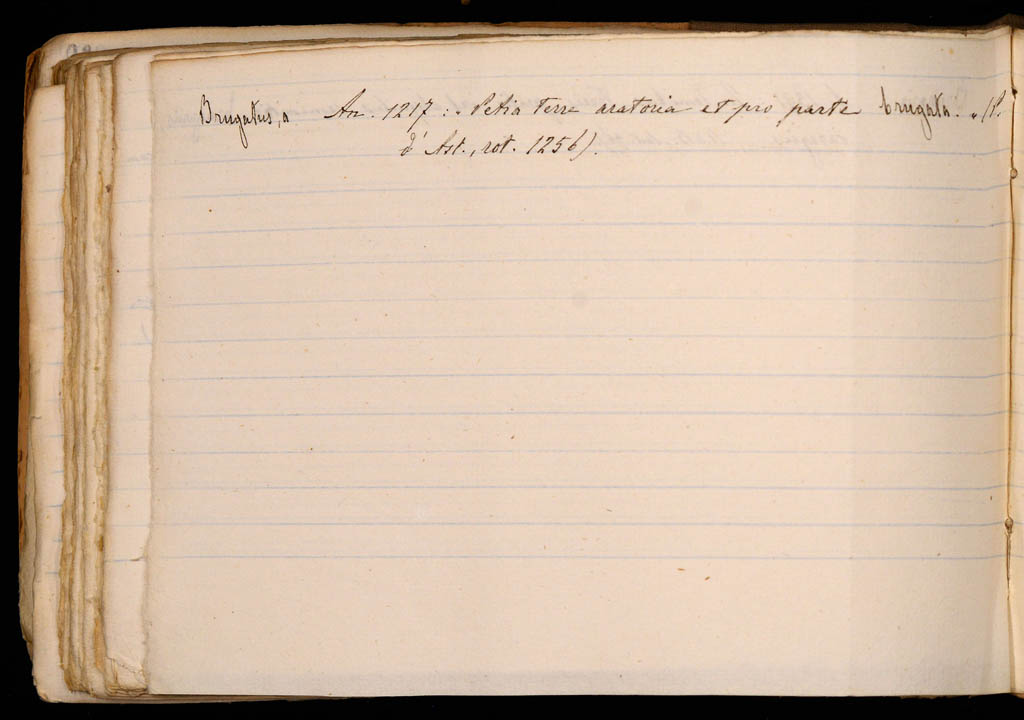 Brugatus, a An. 1217 : « Petia terre aratoria et pro parte brugata. » (P.
d'Ast., rot. 1256).